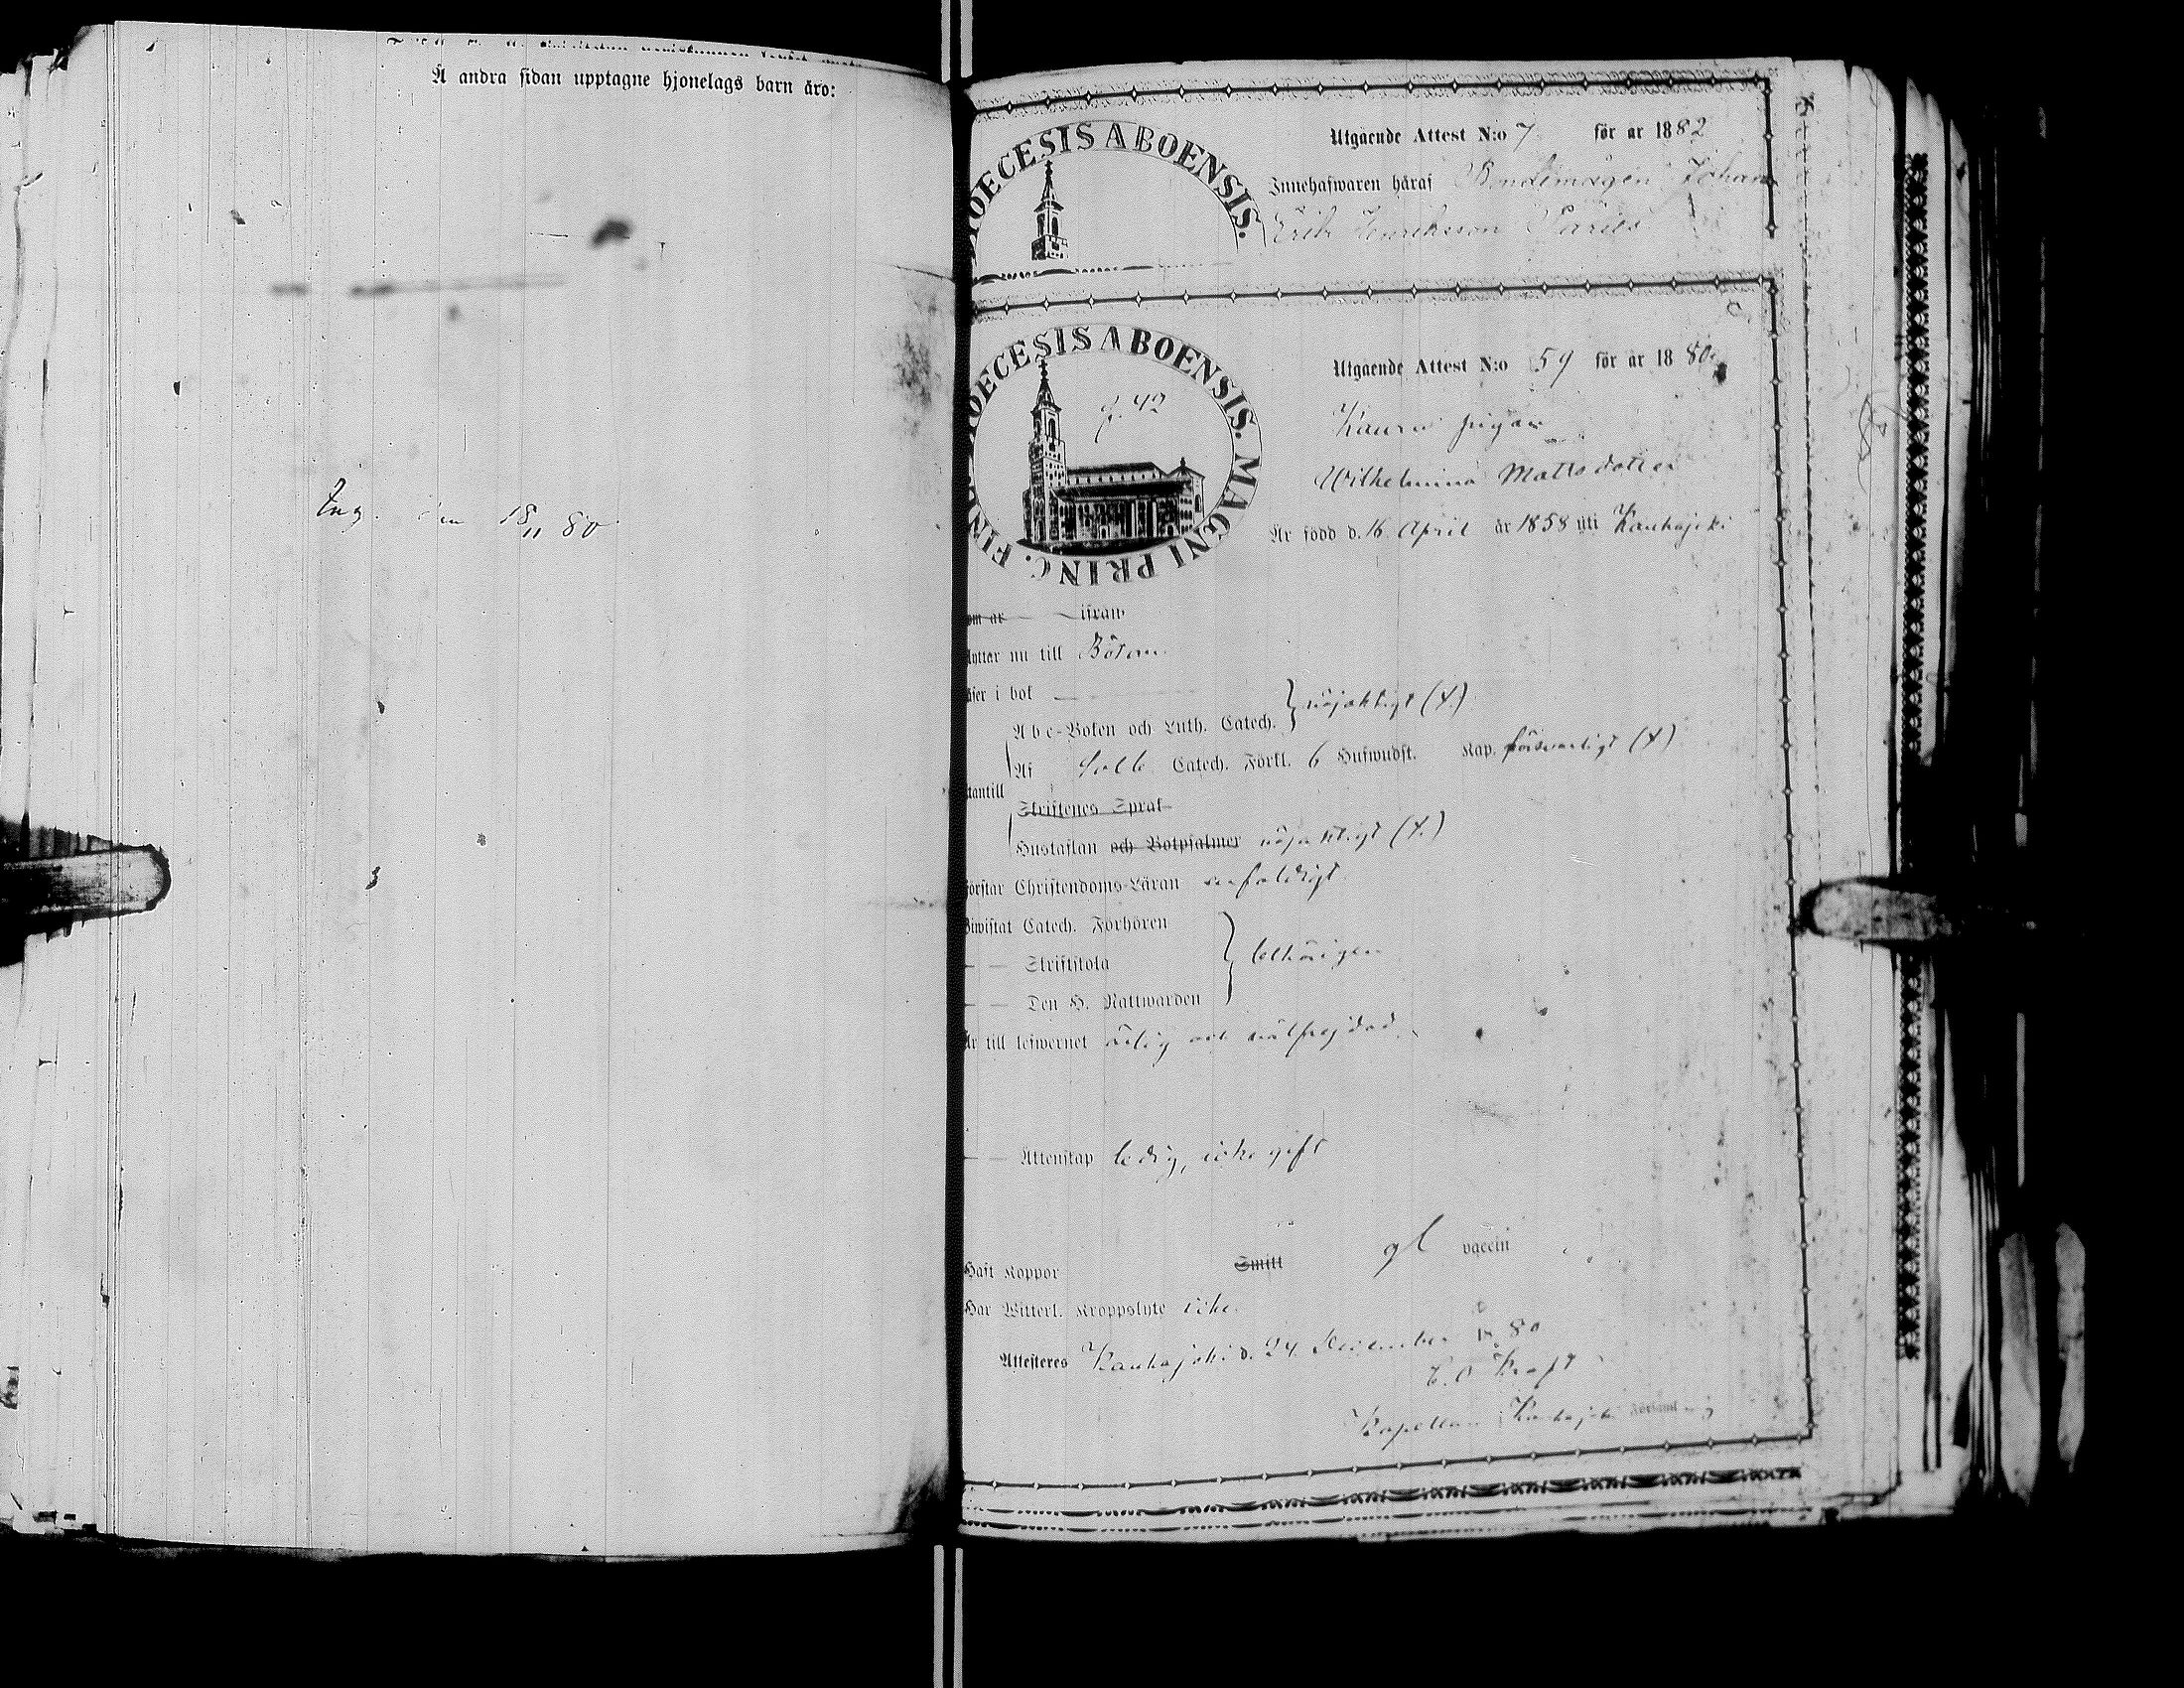 Å andra sidan upptagne hjonelags barn äro:
Ing. den 18/11 80
DIOECESIS ABOENSIS.
Utgående Attest N:o 7 för år 1882
Innehafwaren häraf Bondemågen Johan
Erik Henriksson
DIOECESIS ABOENSIS. MAGNI PRINC. FINL
p. 42
Utgående Attest N:o 59 för år 1880
pigan
Wilhelmina Mattsdotter
Är född d. 16 April år 1858 uti Kauhajoki
om år ifrån
lyttar nu till Bötom
äser i bok
Abc-Boken och Luth. Catech. } nöjaktigt (X.)
Af Catech. Förkl. 6 Hufwudst. Kap. försvarligt (X)
tantill
Skriftenes Språk
Hustaflan och Botpsalmer nöjaktigt (X.)
örstår Christendoms-Läran enfaldigt
iwistat Catech. Förhören
— — Skriftskola } behörigen
— — Den H. Nattwarden
r till lefwernet ärlig och välfrejdad
— — Äktenskap ledig, icke gift
Haft Koppor Smitt gl vaccin
Har Witterl. Kroppslyte icke.
Attesteres Kauhajoki d. 24 December 1880
Kraft
Kapellan i Kauhajoki Församling